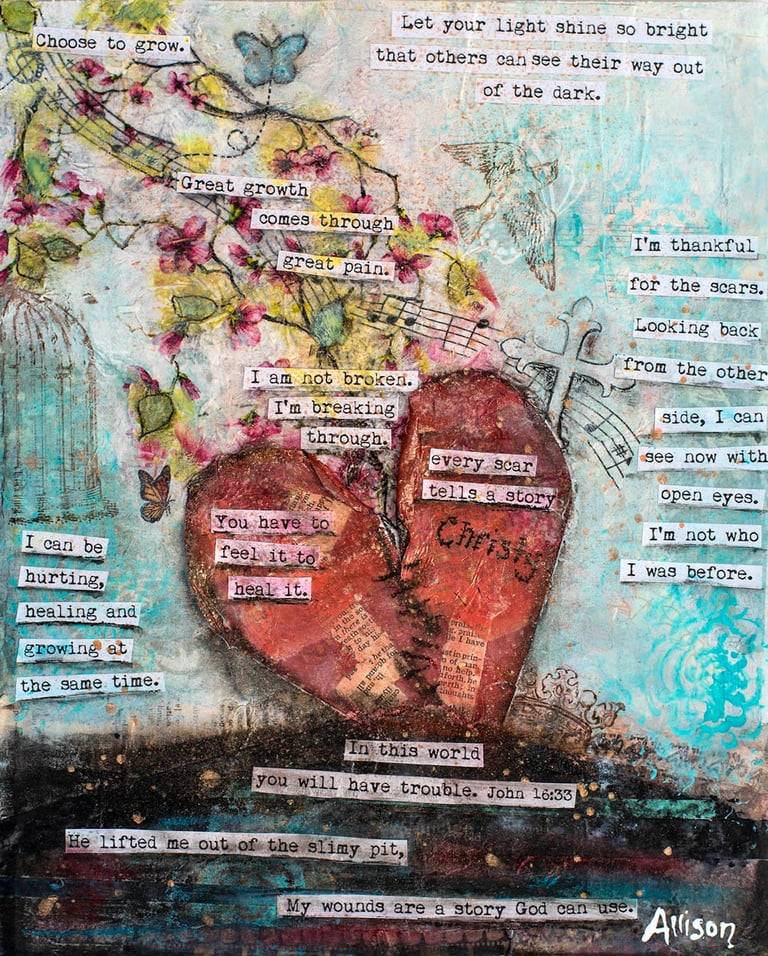 Choose to grow.
Let your light shine so bright
that others can see their way out
of the dark.
Great growth
comes through
great pain.
I'm thankful
for the scars.
Looking back
from the other
side, I can
see now with
open eyes.
I'm not who
I was before.
I am not broken.
I'm breaking
through.
every scar
tells a story
Christy
You have to
feel it to
heal it.
I can be
hurting,
healing and
growing at
the same time.
In this world
you will have trouble. John 16:33
He lifted me out of the slimy pit,
My wounds are a story God can use.
Allison